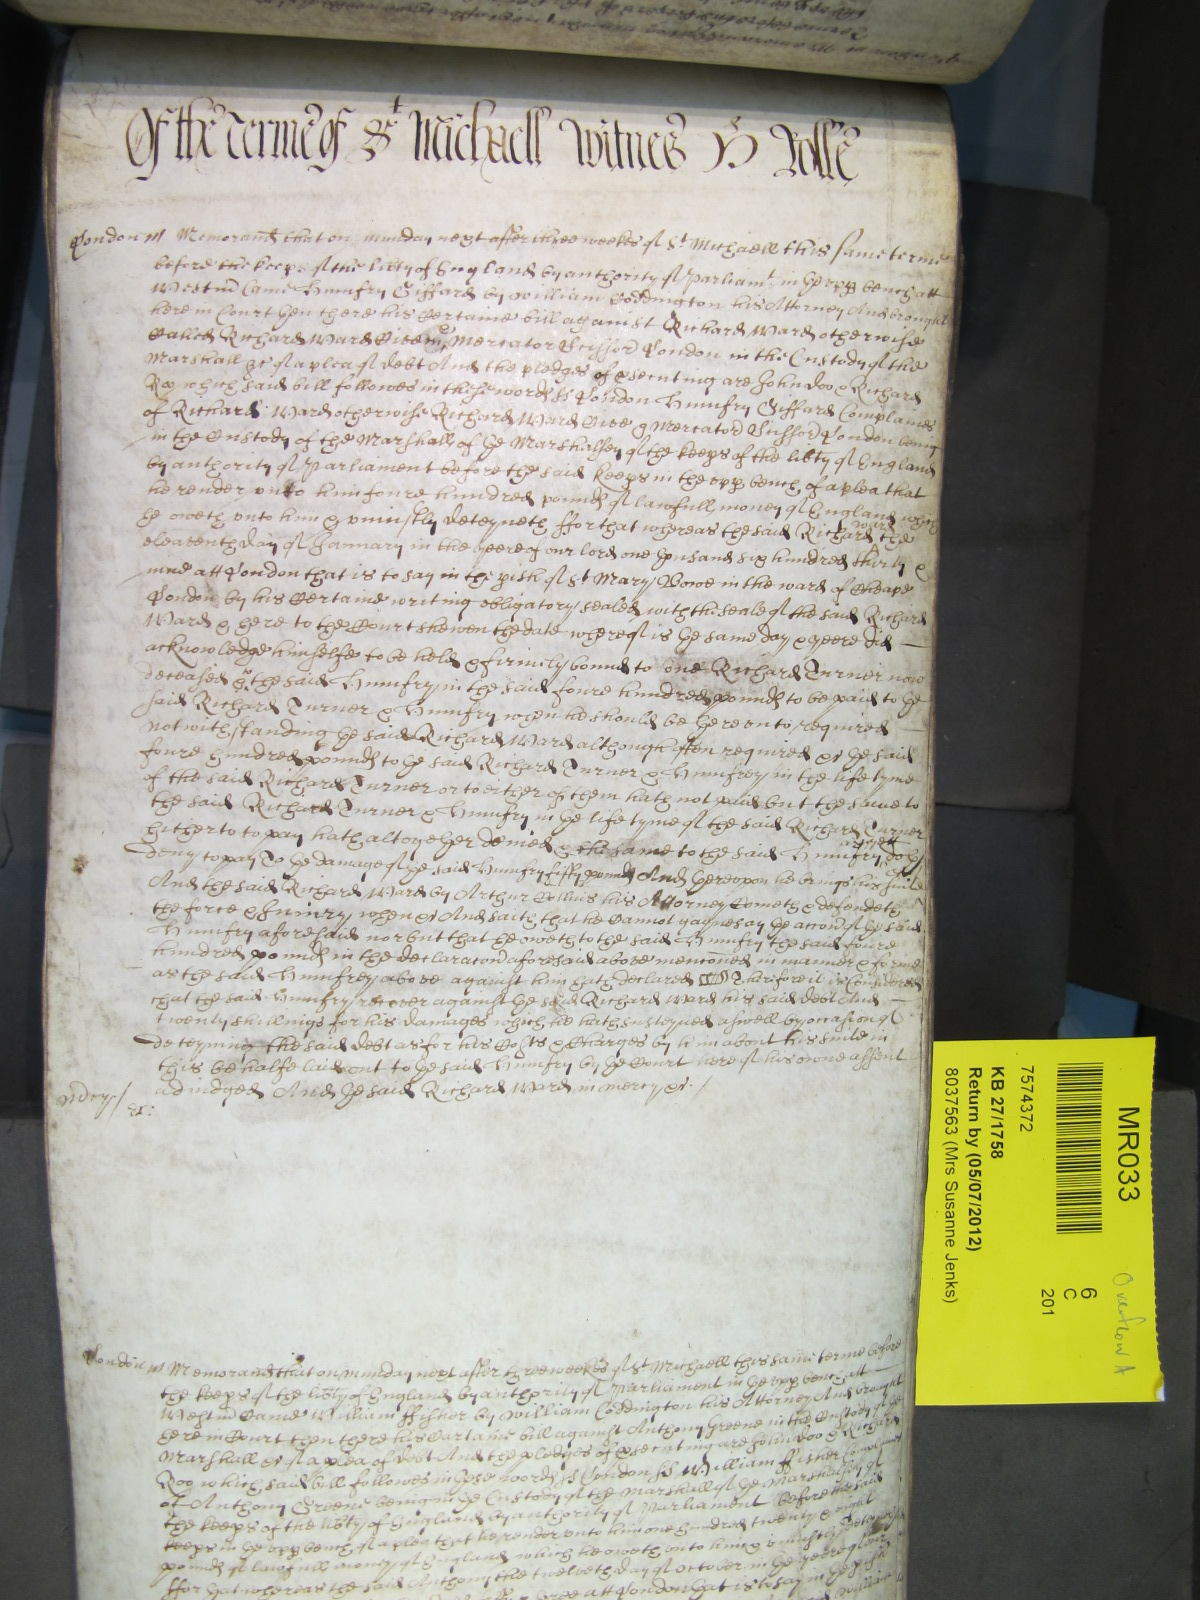 Of the Terme of St Michaell Witnes H Rolle
London ss Memorand that on munday next after three weekes of St Michaell this same terme
before the keeps of the libty of England by authority of Parliamt in the upp bench att
Westm Came Humfry Giffard by William Coddington his Attorney And brought
here in Court then there his Certaine bill against Richard Ward otherwise
Called Richard Ward Civem Mercator Scissor London in the Custody of the
Marshall &c of a plea of debt And the pledges of psecuting are John doo & Richard
Roo which said bill followes in these words ss London Humfry Giffard Complaines
of Richard Ward otherwise Richard Ward Mercator London being
in the Custody of the Marshall of the Marshalsey of the keeps of the libty of England
by authority of Parliament before the said keeps in the upp bench of a plea that
he render unto him foure hundred pounds of lawfull money of England which
he oweth unto him & uniustly deteyneth ffor that whereas the said Richard Ward the
eleaventh day of January in the yeere of our lord one thousand six hundred thirty &
nine att London that is to say in the pish of St Mary Bowe in the ward of Cheape
London by his Certaine writing obligatory sealed with the seale of the said Richard
Ward & here to the Court shewen the date whereof is the same day & yeere did
acknowledge himselfe to be held & firmely bound to one Richard Turner now
deceased & the said Humfry in the said foure hundred pounds to be paid to the
said Richard Turner & Humfry when he should be thereunto required
notwithstanding the said Richard Ward although often required &c the said
foure hundred pounds to the said Richard Turner & Humfrey in the life tyme
of the said Richard Turner or to either of them hath not paid but the same to
the said Richard Turner & Humfry in the life tyme of the said Richard Turner
hitherto to pay hath altogether denied & the same to the said Humfry doth
deny to pay To the damage of the said Humfry fifty pounds And thereupon he brings his suite
And the said Richard Ward by Arthur Collins his Attorney Cometh & defendeth
the force & Iniury when &c And saith that he Cannot gaynesay the accon of the said
Humfry aforesaid nor but that he oweth to the said Humfry the said foure
hundred pounds in the declaracon aforesaid above menconed in manner & forme
as the said Humfrey above against him hath declared Therefore it is Considered
that the said Humfry recover against the said Richard Ward his said debt And
twenty shillings for his damages which he hath susteyned aswell by occasion of
deteyning the said debt as for his Costs & Charges by him about his suite in
this behalfe laid out to the said Humfry by the Court here of his owne assent
adiudged And the said Richard Ward in mercy &c
&c:
London ss Memorand that on munday next after three weekes of St Michaell this same terme before
the keeps of the libty of England by authority of Parliament in the upp bench att
Westm Came William ffisher by William Coddington his Attorney And brought
here in Court then there his Certaine bill against Anthony Greene in the Custody of the
Marshall &c of a plea of debt And the pledges of psecuting are John doo & Richard
Roo which said bill followes in these words ss London ss William ffisher Complaines
of Anthony Greene being in the Custody of the Marshall of the Marshalsey of
the keeps of the libty of England by authority of Parliament before the said
keeps in the upp bench of a plea that he render unto him one hundred twenty & eight
pounds of lawfull money of England which he oweth unto him & uniustly deteyneth
ffor that whereas the said Anthony the twelveth day of October in the yeere of our
att London that is to say in the pish
MR033
7574372
KB 27/1758
Return by (05/07/2012)
8037563 (Mrs Susanne Jenks)
6
C
201
Overflow A